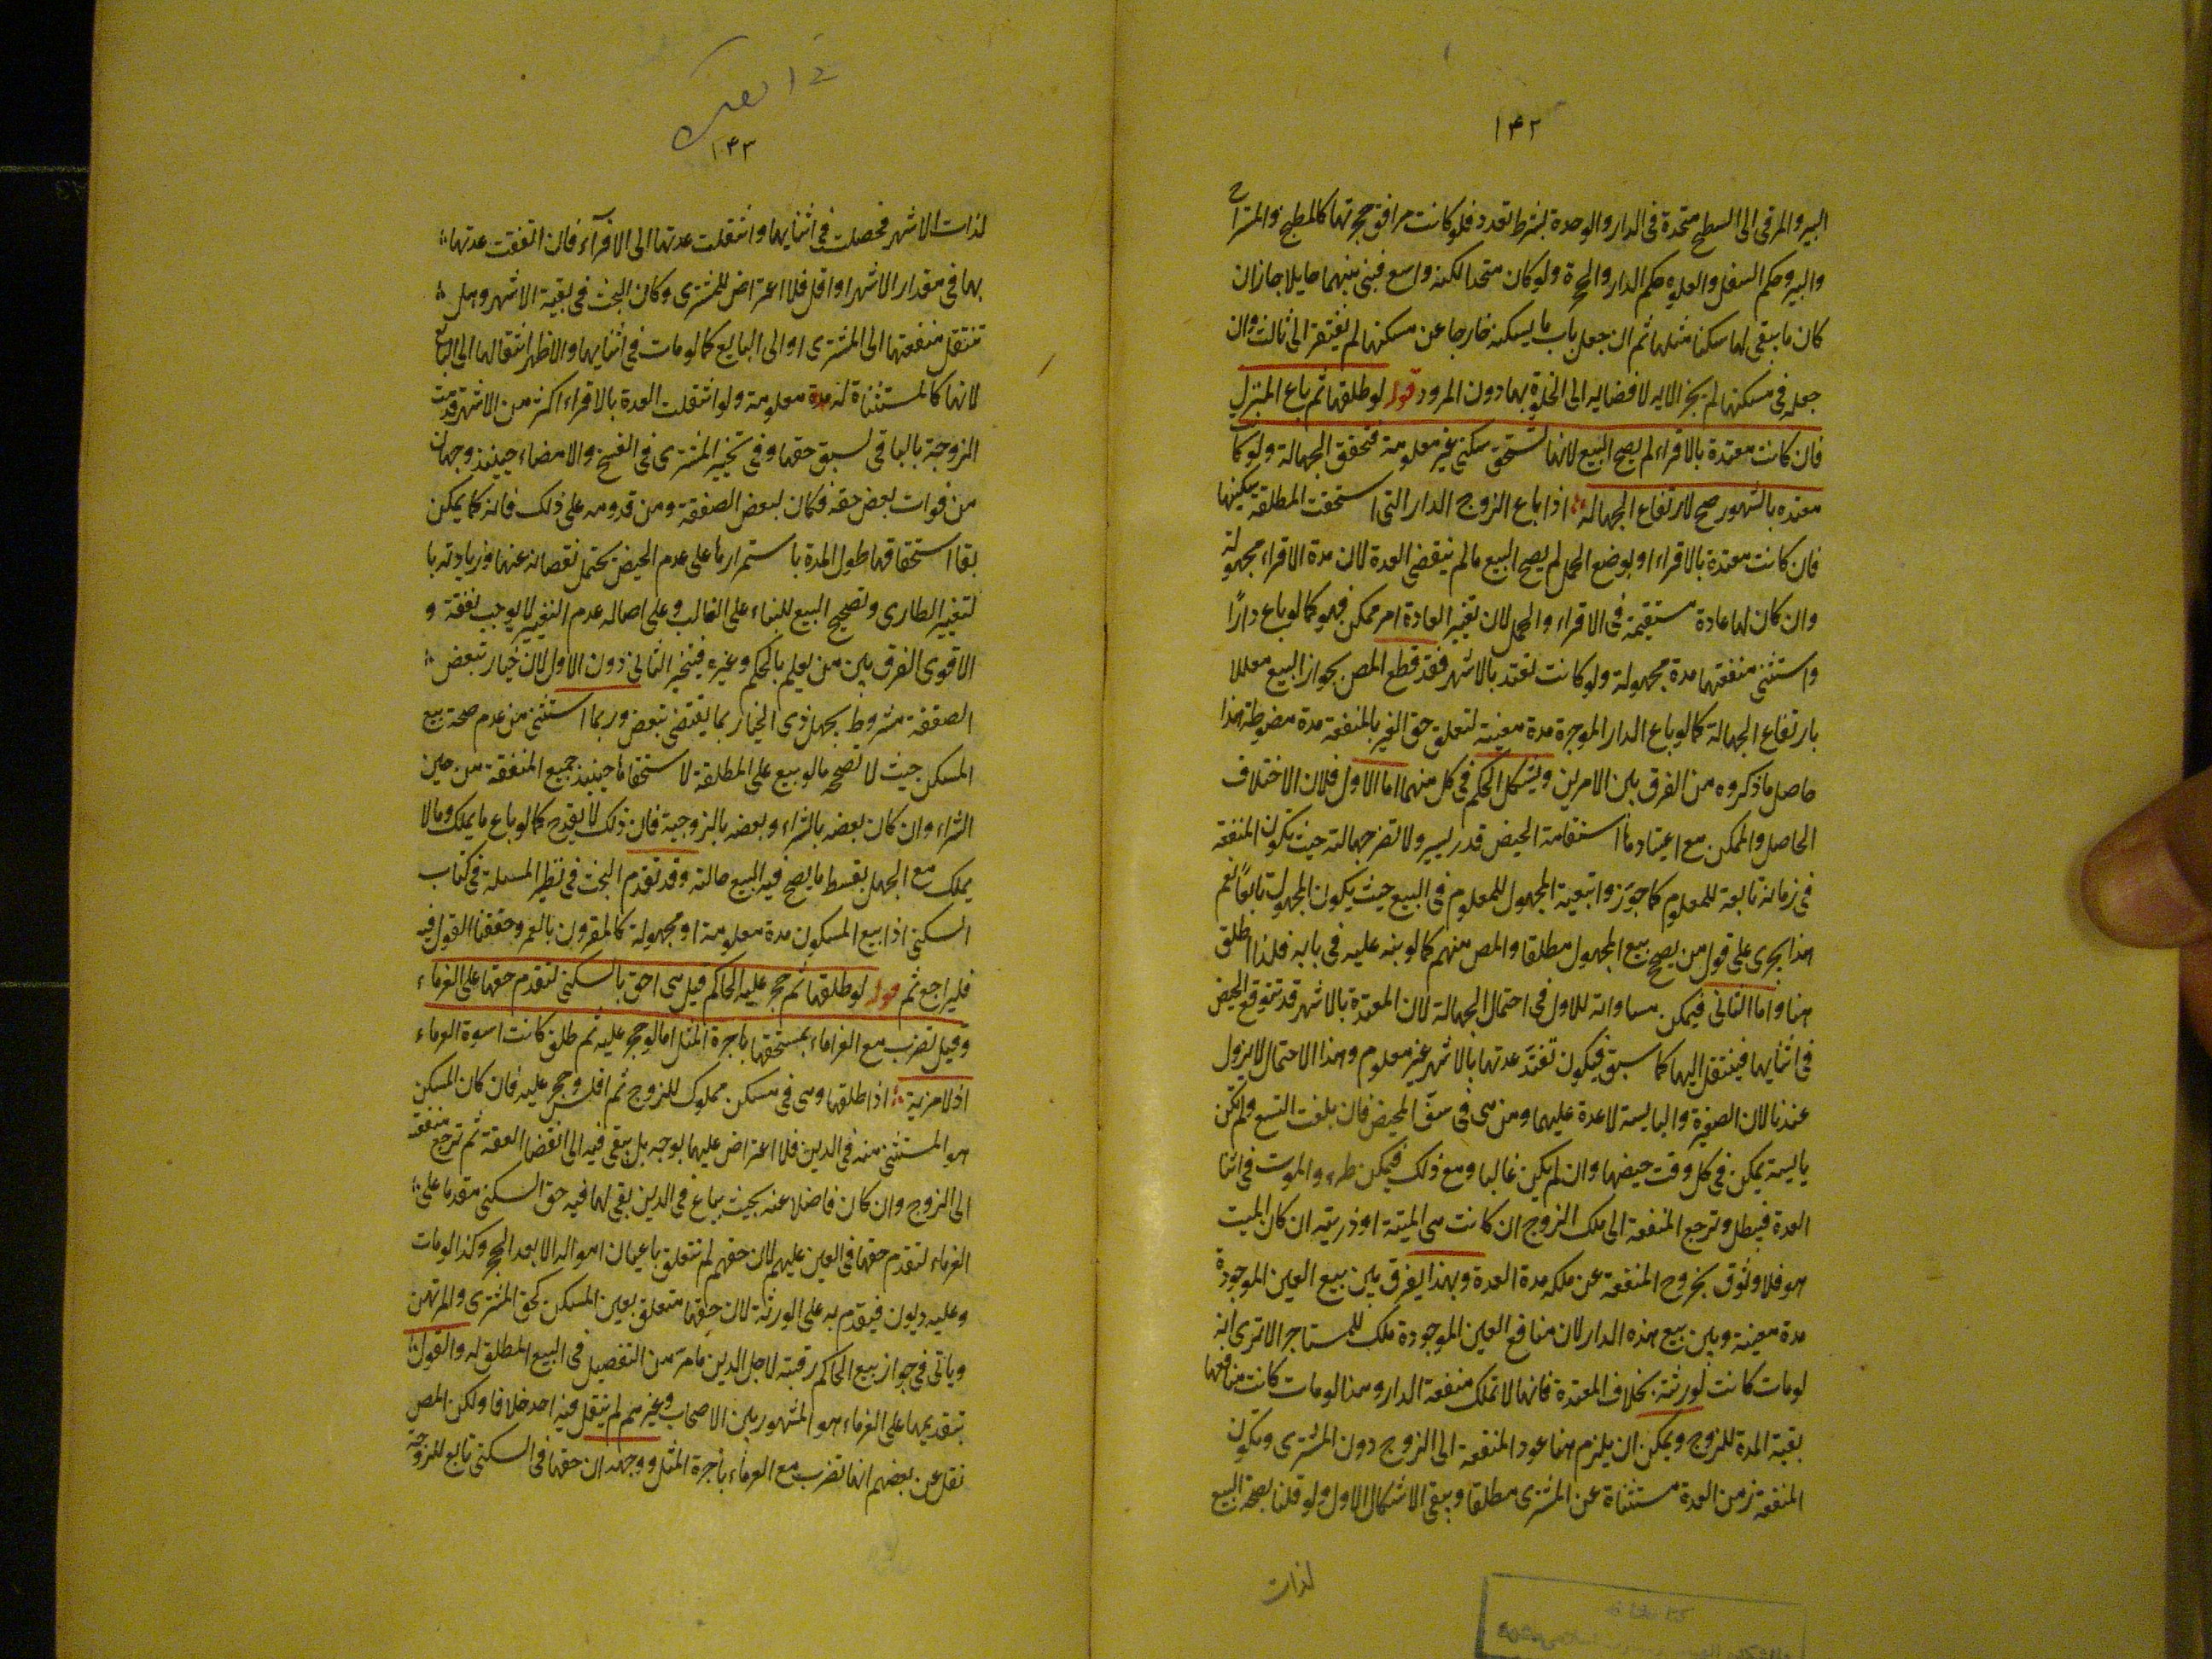 ١٤٢
البير والمرقى الى السطح متحدة فى الدار والوحدة بشرط تعدد فلو كانت مرافق حجرتها كالمطبخ والمستراح
والبير وحكم السفل والعلو حكم الدار والحجرة ولو كان متحدا لكنه واسع فبنى بينهما حايلا جاز ان
كان ما يبقى لها سكنا مثلها ثم ان جعل باب ما يسكنه خارجا عن مسكنها لم يفتقر الى ثالث وان
جعله فى مسكنها لم يجز الا به لافضايه الى الخلوة بها دون المرور قوله لو طلقها ثم باع المنزل
فان كانت معتدة بالاقراء لم يصح البيع لانها تستحق سكنى غير معلومة فتحقق الجهالة ولو كا
معتده بالشهور صح لارتفاع الجهالة اذا باع الزوج الدار التى استحقت المطلقة سكنيها
فان كانت معتدة بالاقراء او بوضع الحمل لم يصح البيع ما لم ينقضى العدة لان مدة الاقراء مجهولة
وان كان لها عادة مستقيمة فى الاقراء والحمل لان تغير العادة امر ممكن فهو كما لو باع دارًا
واستثنى منفعتها مدة مجهولة ولو كانت تعتد بالاشهر فقد قطع المص بجواز البيع معللا
بارتفاع الجهالة كما لو باع الدار الموجرة مدة معينة لتعلق حق الغير بالمنفعة مدة مضبوطة هذا
حاصل ما ذكروه من الفرق بين الامرين ويشكل الحكم فى كل منهما اما الاول فلان الاختلاف
الحاصل والممكن مع اعتيادها استقامة الحيض قدر يسير ولا تضر جهالته حيث يكون المنفعة
فى زمانه تابعة للمعلوم كما جوزوا تبعية المجهول للمعلوم فى البيع حيث يكون المجهول تابعًا نعم
هذا يجرى على قول من يصحح بيع المجهول مطلقا والمص منهم كما لو بنه عليه فى بابه فلذا اطلق
هنا واما الثانى فيمكن مساواته للاول فى احتمال الجهالة لان المعتدة بالاشهر قد تتوقع الحيض
فى اثنايها فينتقل اليها كما سبق فيكون تعتد عدتها بالاشهر غير معلوم وهذا الاحتمال لا يزول
عندنا لان الصغيرة واليايسة لا عدة عليهما ومن هى فى سن الحيض فان بلغت التسع ولم تكن
يايسة يمكن فى كل وقت حيضها وان لم يكن غالبا ومع ذلك فيمكن طروء الموت فى اثنا
العدة فيبطل وترجع المنفعة الى ملك الزوج ان كانت هى الميتة او ذريته ان كان الميت
هو فلا وثوق بخروج المنفعة عن ملكه مدة العدة وبهذا يفرق بين بيع العين الموجودة
مدة معينة وبين بيع هذه الدار لان منافع العين الموجودة ملك للمستاجر الا ترى انه
لو مات كانت لورثته بخلاف المعتدة فانها لا تملك منفعة الدار وهنا لو مات كانت منافعها
بقية المدة للزوج ويمكن ان يلزم هنا عود المنفعة الى الزوج دون المشترى ويكون
المنفعة زمن العدة مستثناة عن المشترى مطلقا ويبقى الاشكال الاول ولو قلنا بصحة البيع
لذات
١٤٣
لذات الاشهر فحصلت فى اثنايها وانتقلت عدتها الى الاقرآء فان اتفقت عدتها
بها فى مقدار الاشهر او اقل فلا اعتراض للمشترى وكان البحث فى بقية الاشهر وهل
تنتقل منفعتها الى المشترى او الى البايع كما لو مات فى اثنايها والاظهر انتقالها الى البايع
لانها كالمستثناة له مدة معلومة ولو انتقلت العدة بالاقراء اكثر من الاشهر قدمت
الزوجة بالباقى لسبق حقها وفى تخيير المشترى فى الفسخ والامضاء حينئذ وجهان
من فوات بعض حقه فكان لبعض الصفقة ومن قدومه على ذلك فانه كما يمكن
بقا استحقاقها طول المدة باستمرارها على عدم الحيض يحتمل نقصانه عنها وزيادته با
لتغيير الطارى وتصحيح البيع للبناء على الغالب وعلى اصاله عدم التغيير لا يوجب نفقة و
الاقوى الفرق بين من يعلم بالحكم وغيره فيتخير الثانى دون الاول لان خيار تبعض
الصفقة مشروط بجهل ذى الخيار بما يقتضى تبعض وربما استثنى من عدم صحة بيع
المسكن حيث لا تصح ما لو بيع على المطلقة لاستحقاقها حينئذ جميع المنفعة من حين
الشراء وان كان بعضه بالشراء وبعضه بالزوجية فان ذلك لا يقدح كما لو باع ما يملك وما لا
يملك مع الجهل بقسط ما يصح فيه البيع حالته وقد تقدم البحث فى نظير المسئلة فى كتاب
السكنى اذا بيع المسكون مدة معلومة او مجهولة كالمقرون بالعمر وحققنا القول فيه
فليراجع ثم قوله لو طلقها ثم حجر عليه الحاكم قيل هى احق بالسكنى لتقدم حقها على الغرماء
وقيل تضرب مع الغرماء بمستحقها باجرة المثل اما لو حجر عليه ثم طلق كانت اسوة الغرماء
اذ لا مزية اذا طلقها وهى فى مسكن مملوك للزوج ثم افلس وحجر عليه فان كان المسكن
هو المستثنى منه فى الدين فلا اعتراض عليها بوجه بل يبقى فيه الى انقضا العقة ثم ترجع منفعته
الى الزوج وان كان فاضلا عنه بحيث يباع فى الدين بقى لها فيه حق السكنى مقدما على
الغرماء لتقدم حقها فى العين عليهم لان حقهم لم تتعلق باعيان امواله الا بعد الحجر وكذا لو مات
وعليه ديون فيقدم به على الورثة لان حقها متعلق بعين المسكن كحق المشترى والمرتهن
وياتى فى جواز بيع الحاكم رقبته لاجل الدين ما مر من التفصيل فى البيع المطلق له والقول
بتقديمها على الغرماء هو المشهور بين الاصحاب وغيرهم لم ينقل فيه احد خلافا ولكن المص
نقل عن بعضهم انها تضرب مع الغرماء باجرة المثل ووجهه ان حقها فى السكنى تابع للزوجية